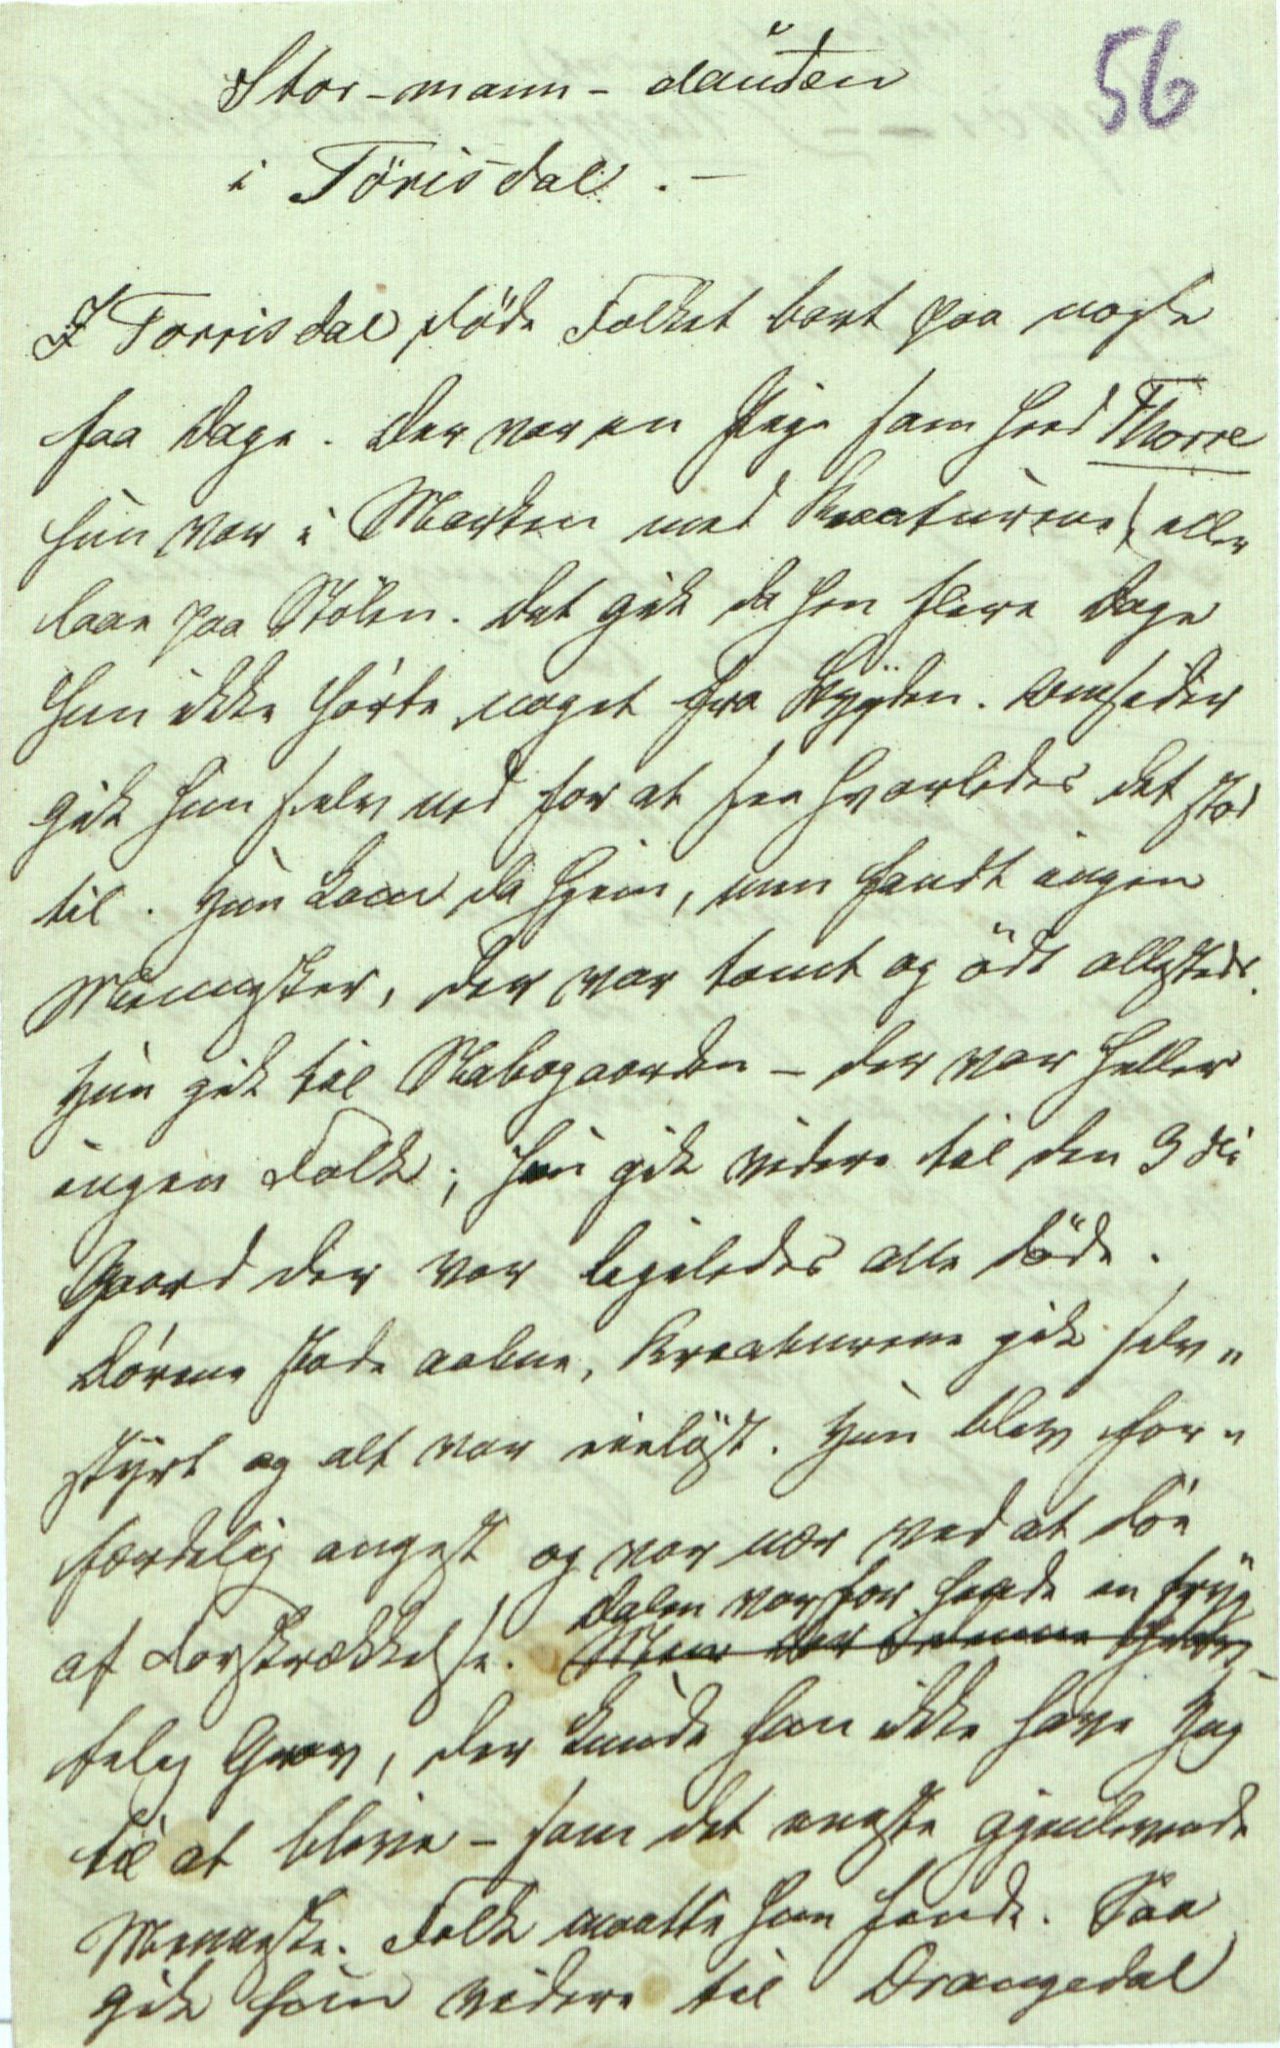 56
Stor-mann-dauden
i Törisdal. -
I Torrisdal döde Folket bort paa nogle
faa Dage. Der var en Pige som hed Thorre
hun var i Marken med Kreaturene, eller
laae paa Stölen. Det gik da hen flere Dage
hun ikke hörte noget fra Bygden. Omsider
gik hun selv ned for at see hvorledes det stod
til. Hun kom da hjem, men fandt ingen
Mennesker, der var tomt og ödt allesteds.
Hun gik til Nabogaarden - der var heller
ingen Folk; hun gik videre til den 3die
Gaard der var ligeledes alle döde.
Dörene stode aabne, Kreaturene gik selv„
styrt og alt var eielöst. Hun blev for„
færdelig angest og var nær ved at döe
Dalen var for hende en fryg
af Forskrækkelse. Men der i denne
telig Grav, der kunde hun ikke have Hug
til at blive - som det eneste gjenlevende
Menneske. Folk maatte hun finde. Saa
gik hun videre til Drangedal